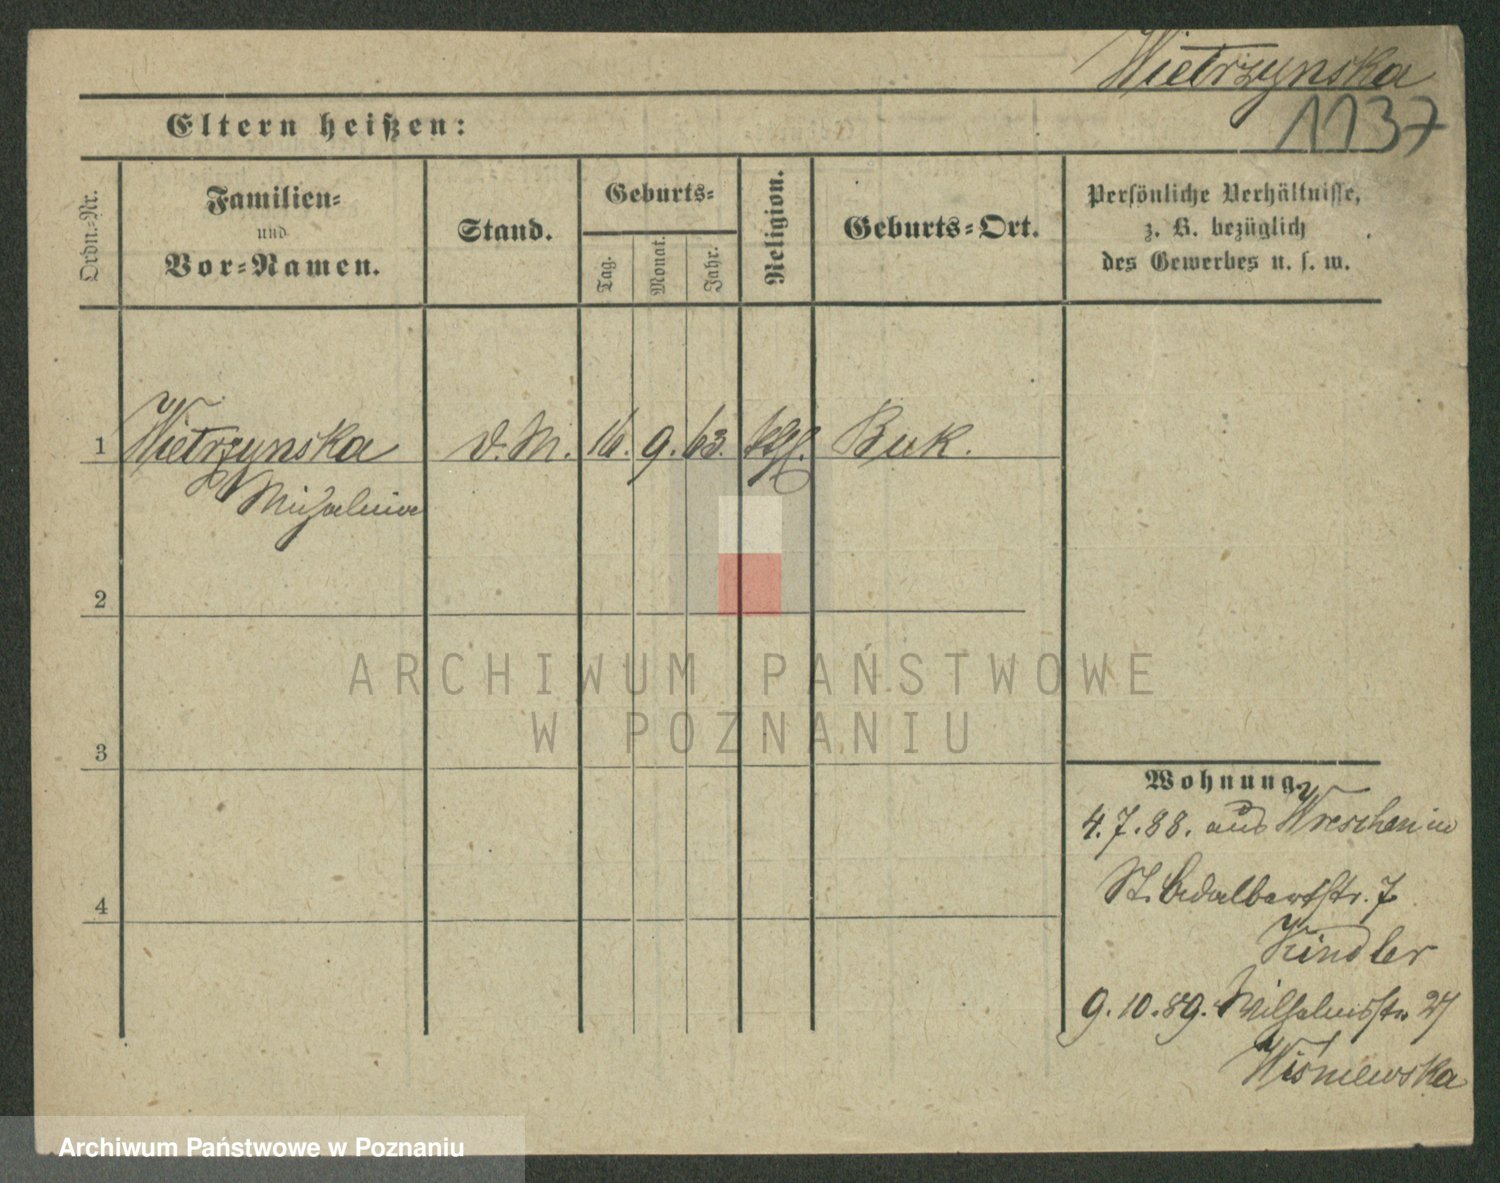 Wietrzynska
1137
Eltern heißen:
Ordn.-Nr.
Familien-
und
Vor-Namen.
Stand.
Geburts-
Tag.
Monat.
Jahr.
Religion.
Geburts-Ort.
Persönliche Verhältnisse,
z. B. bezüglich
des Gewerbes u. s. w.
1 Wietrzynska D.M. 16. 9. 63. Buk.
2
3
4
ARCHIWUM PAŃSTWOWE
W POZNANIU
Wohnung.
4.7.88. aus Wreschen in
St. Adalbertstr. 7
Kindler
9.10.89. Wilhelmsstr. 27
Wiśniewska
Archiwum Państwowe w Poznaniu